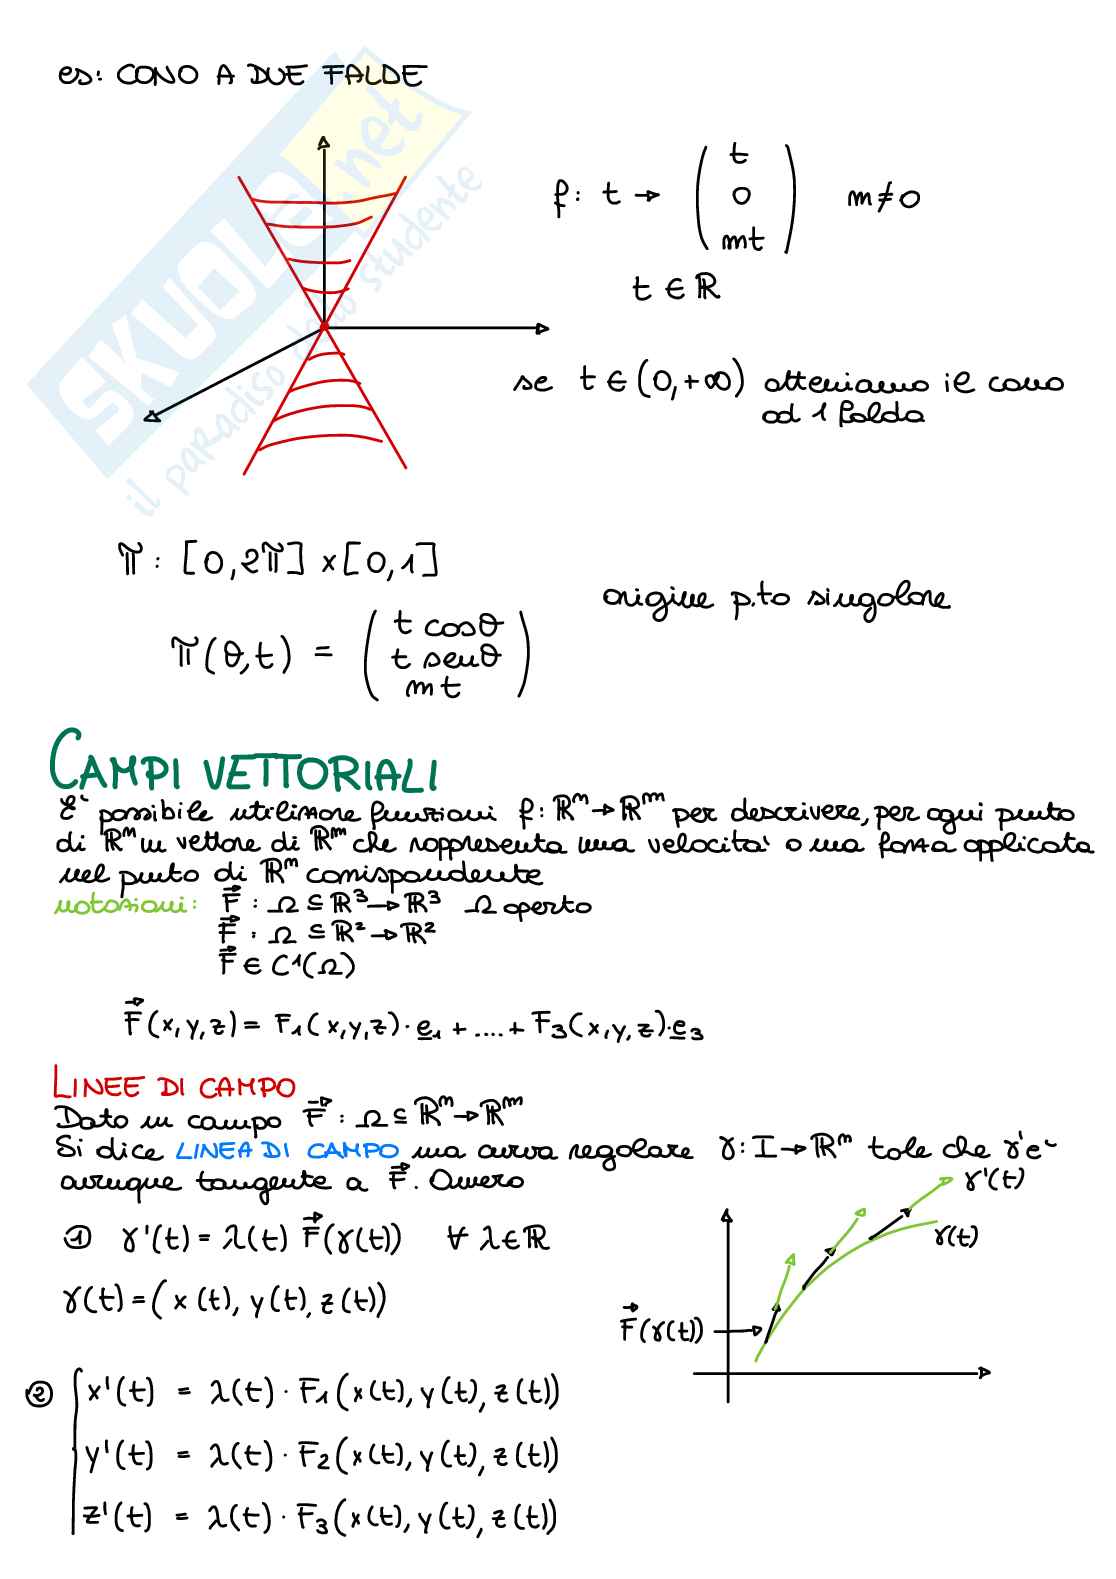 es: CONO A DUE FALDE
f: t → ( t 0 mt ) m≠0
t ∈ ℝ
se t ∈ (0,+∞) otteniamo il cono
ad 1 falda
π: [0,2π] × [0,1]
origine p.to singolare
π(θ,t) = ( t cosθ t senθ mt )
CAMPI VETTORIALI
E' possibile utilizzare funzioni f: ℝⁿ→ℝᵐ per descrivere, per ogni punto
di ℝⁿ un vettore di ℝᵐ che rappresenta una velocita' o una forza applicata
nel punto di ℝⁿ corrispondente
notazioni: F⃗ : Ω ⊆ ℝ³→ℝ³ Ω aperto
F⃗ : Ω ⊆ ℝ²→ℝ²
F⃗ ∈ C¹(Ω)
F⃗(x,y,z) = F₁(x,y,z)·e₁ + .... + F₃(x,y,z)·e₃
LINEE DI CAMPO
Dato un campo F⃗ : Ω ⊆ ℝⁿ→ℝᵐ
Si dice LINEA DI CAMPO una curva regolare γ: I→ℝᵐ tale che γ' e'
ovunque tangente a F⃗. Ovvero
① γ'(t) = λ(t) F⃗(γ(t)) ∀ λ∈ℝ
γ(t) = ( x(t), y(t), z(t))
γ'(t)
γ(t)
F⃗(γ(t))
② x'(t) = λ(t) · F₁(x(t), y(t), z(t))
y'(t) = λ(t) · F₂(x(t), y(t), z(t))
z'(t) = λ(t) · F₃(x(t), y(t), z(t))
SKUOLA.net
il paradiso dello studente